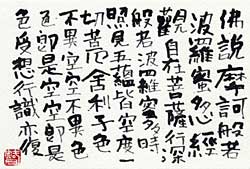 佛說摩訶般若
波羅蜜多心經
觀自在菩薩行深
般若波羅蜜多時
照見五蘊皆空度一
切苦厄舍利子色
不異空空不異色
色即是空空即是
色受想行識亦復